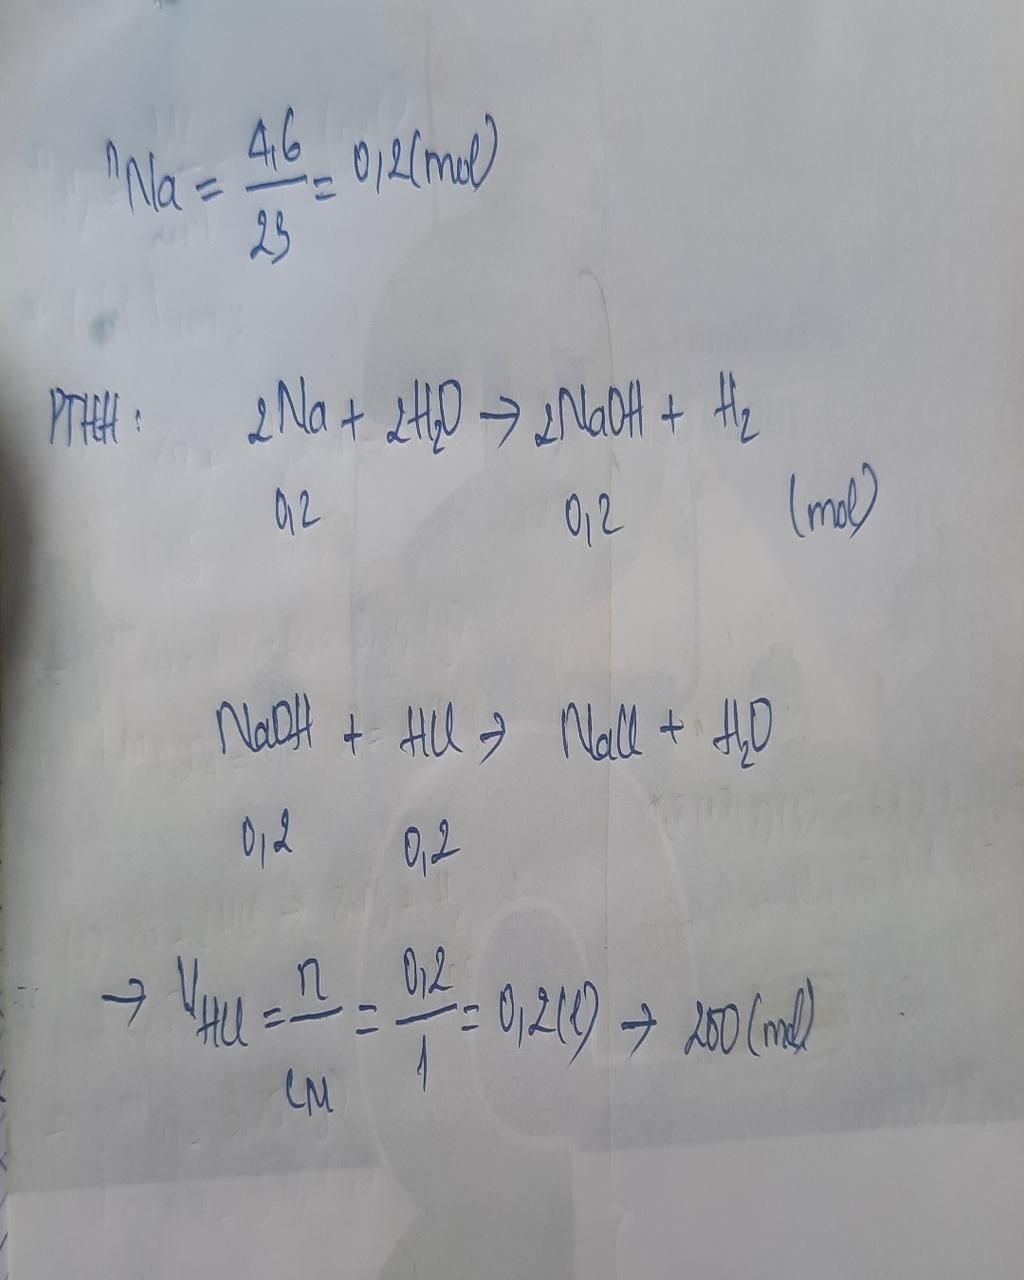 nNa = 4,6/23 = 0,2(mol)
PTHH: 2Na + 2H₂O → 2NaOH + H₂
0,2 0,2 (mol)
NaOH + HCl → NaCl + H₂O
0,2 0,2
→ VHCl = n/CM = 0,2/1 = 0,2(l) → 200(ml)